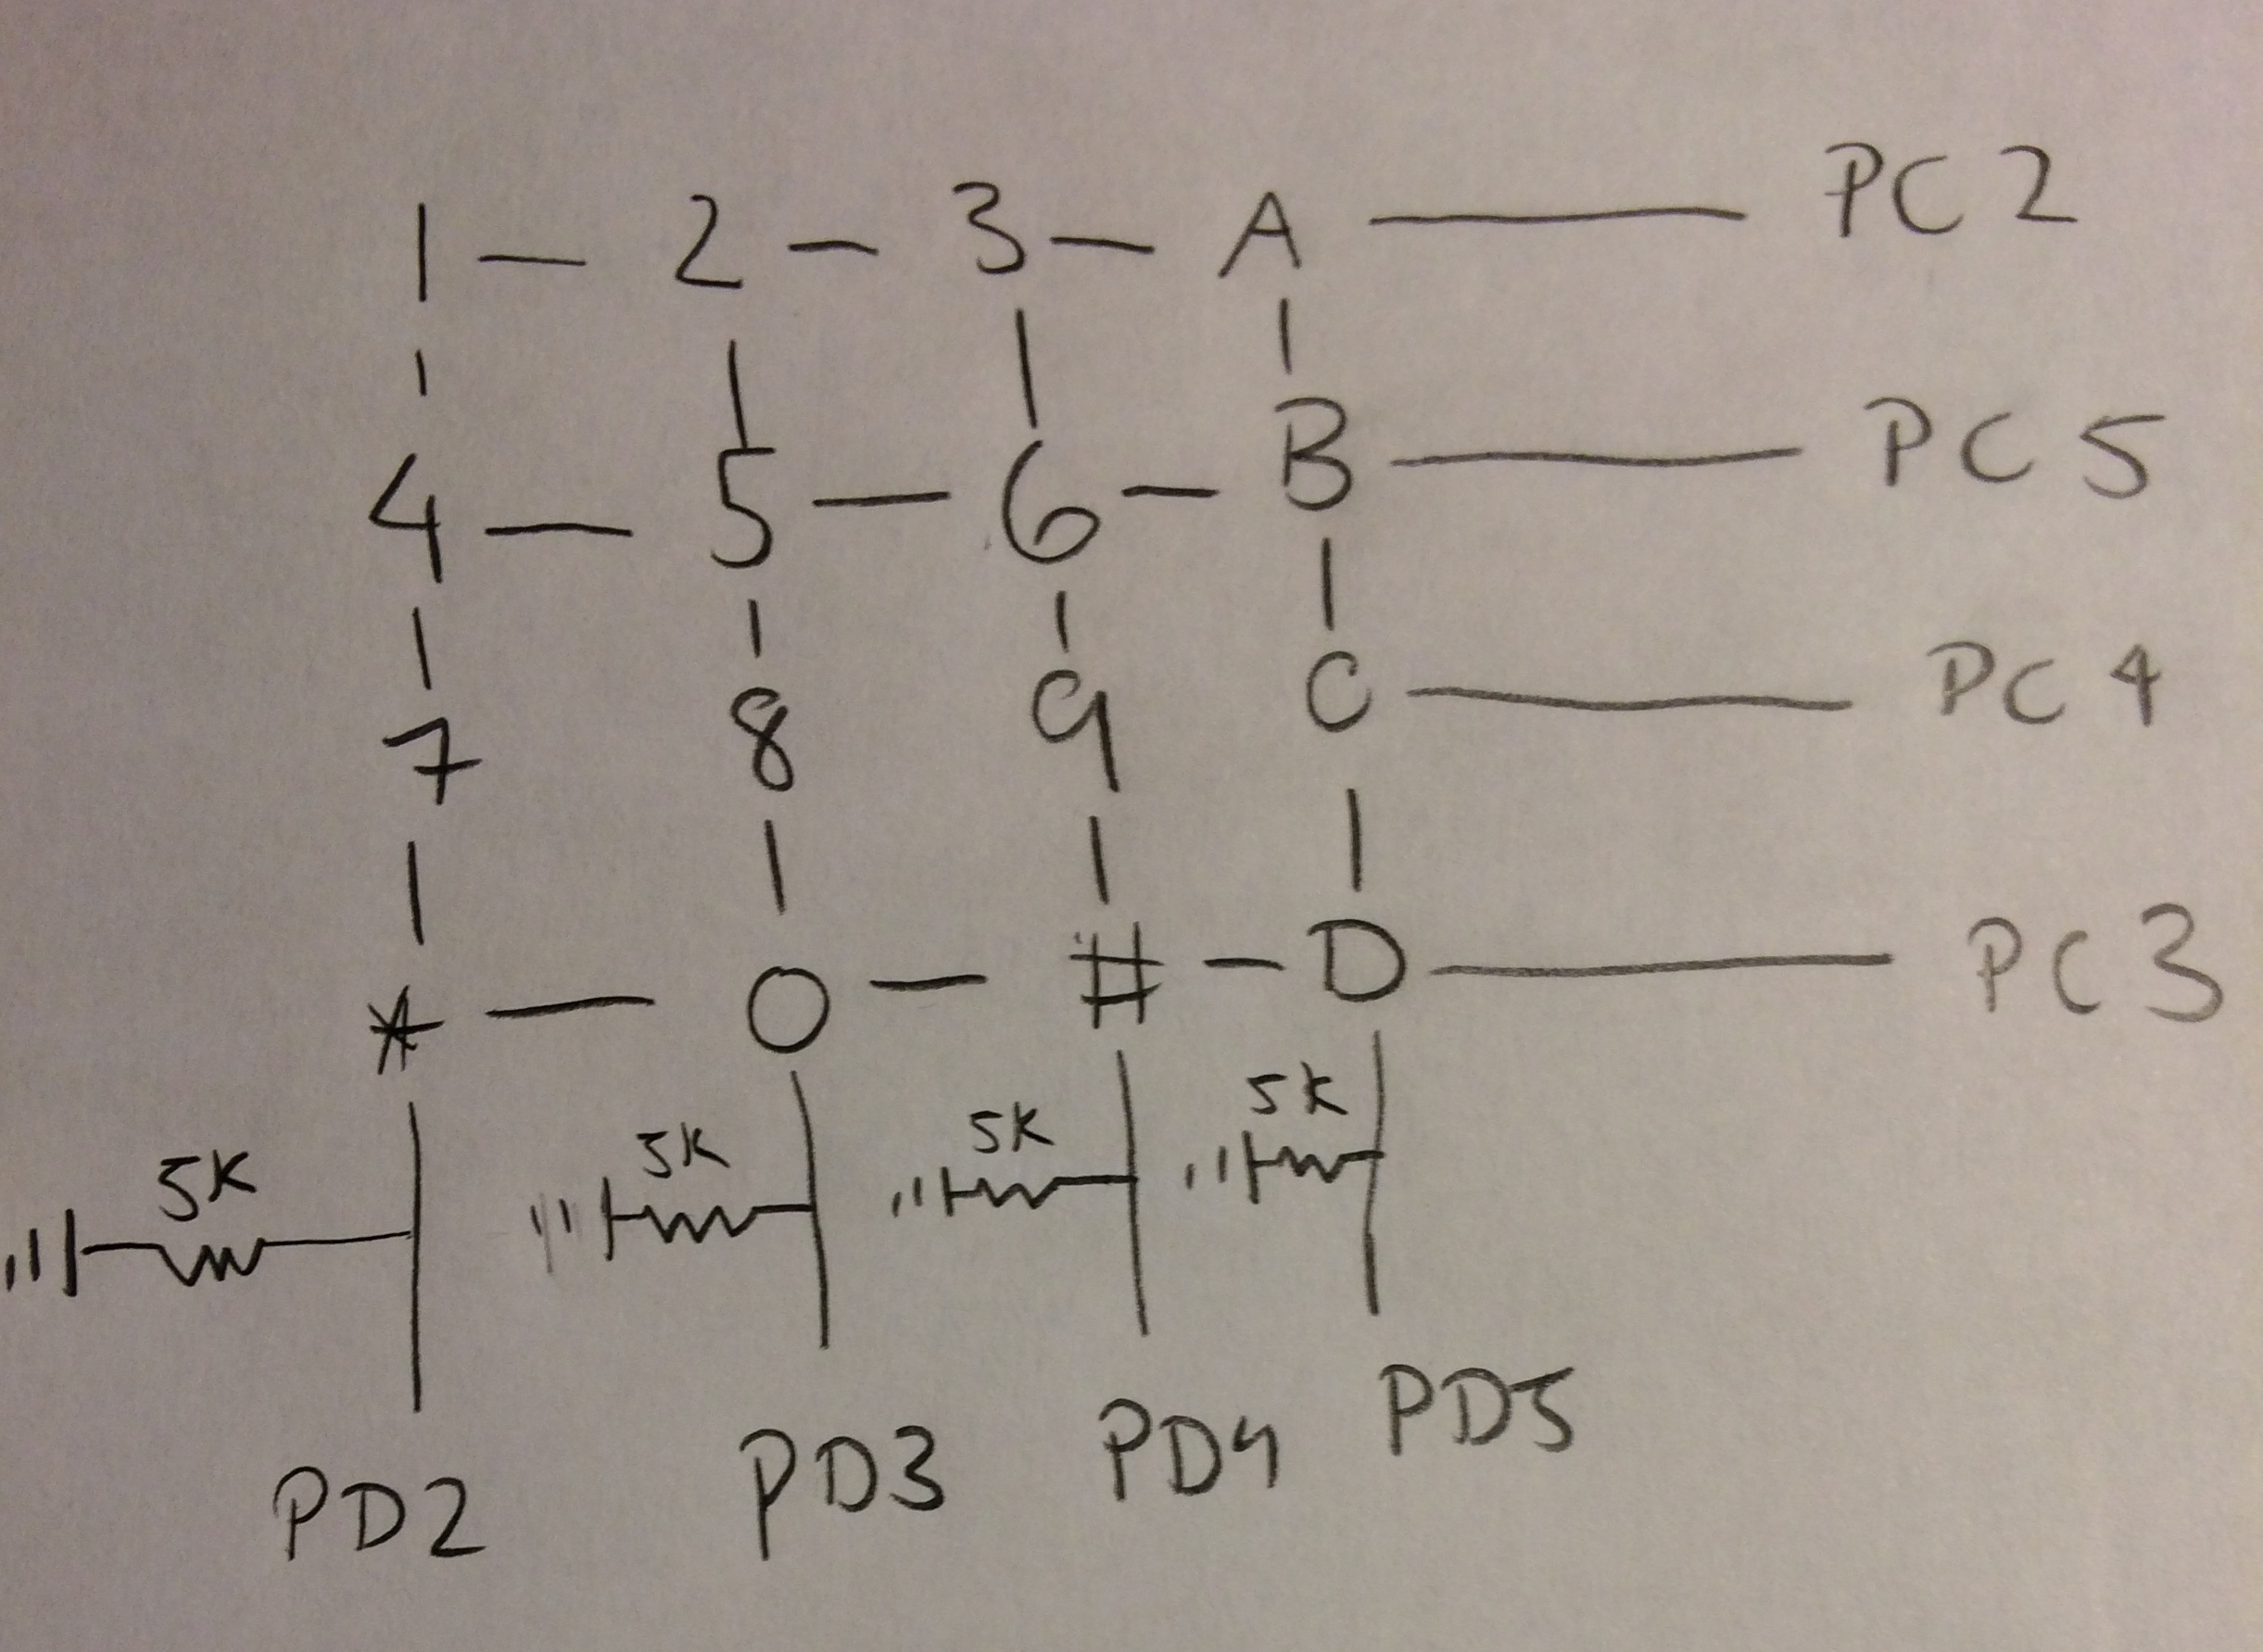 1 2 3 A PC2
4 5 6 B PC5
7 8 9 C PC4
* 0 # D PC3
5K 5K 5K 5K
PD2 PD3 PD4 PD5